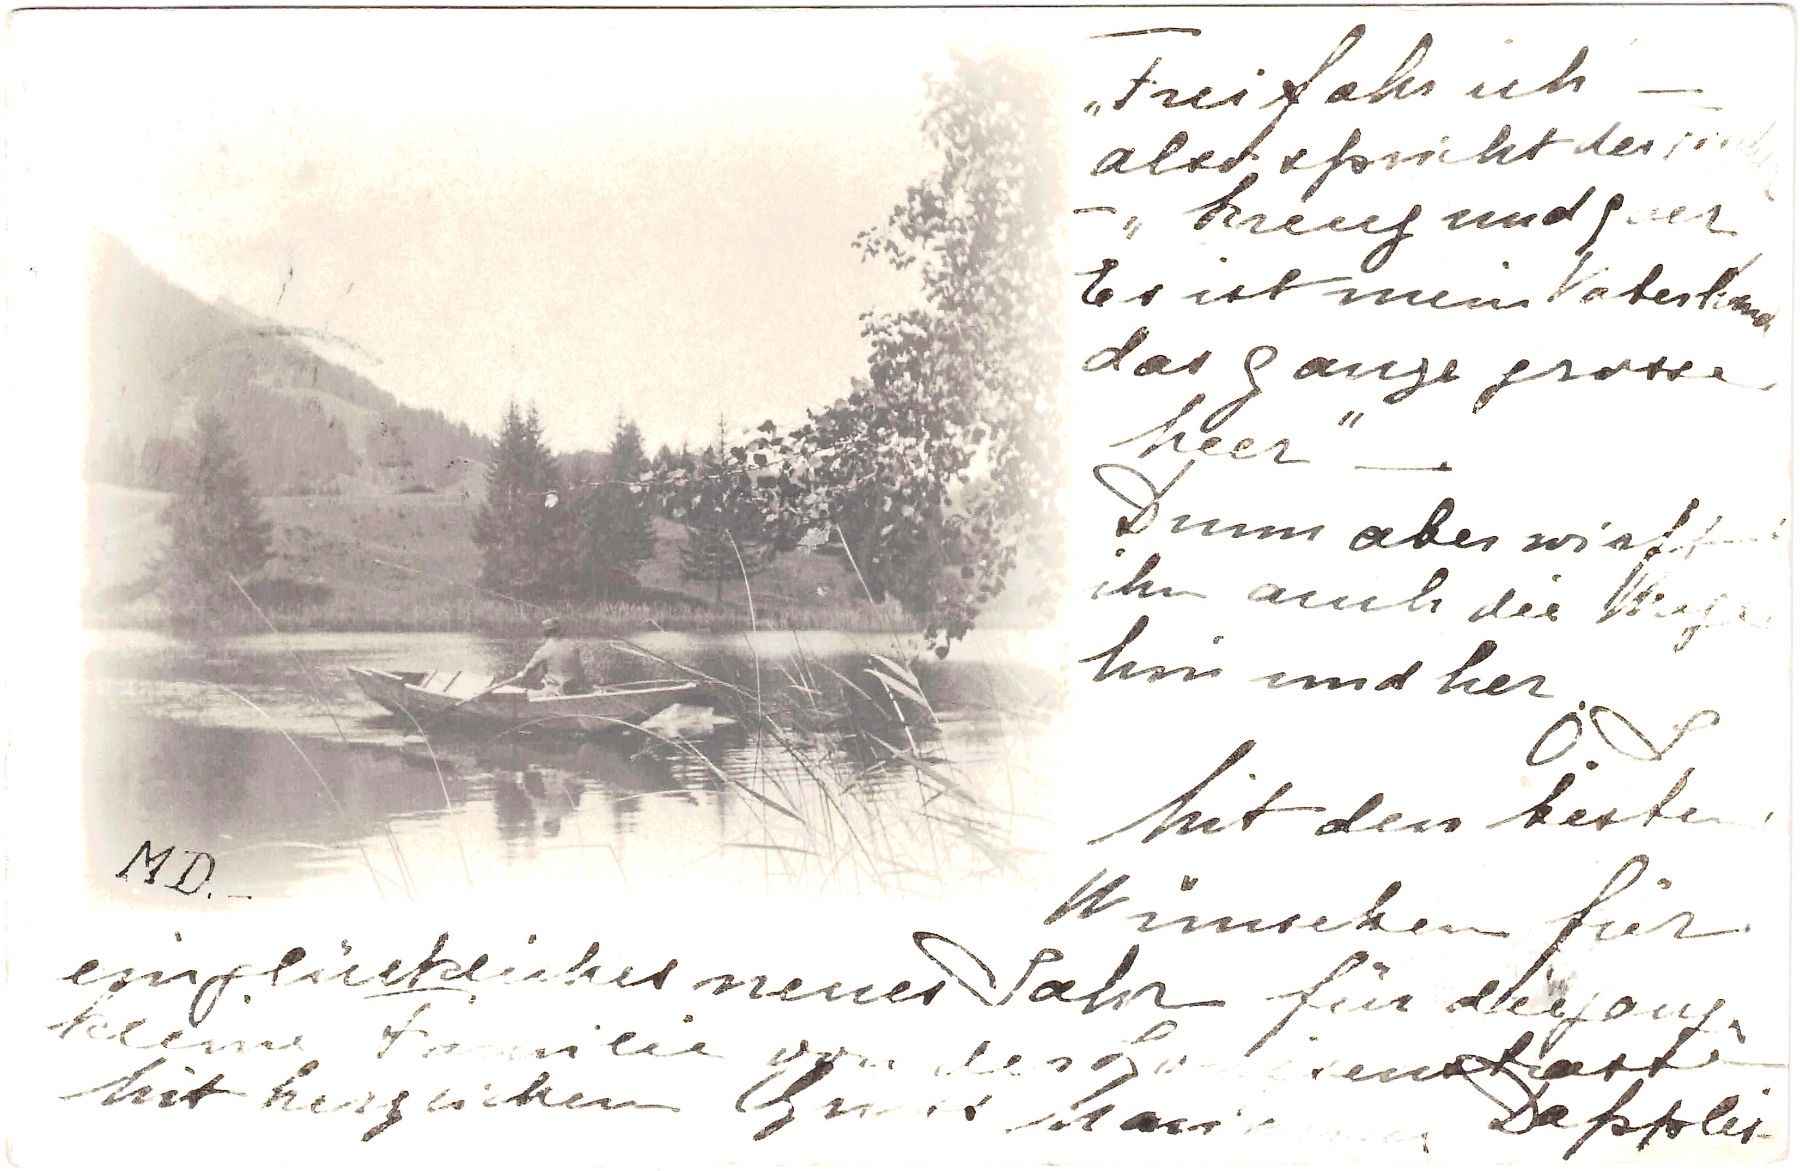 „Frei fahr ich —
also spricht der
—„ kreuz und quer
Es ist mein Vaterland
das ganze grosse
heer" —
Drum aber wirft
ihn auch die Woge
hin und her
Ö S
Mit den besten
Wünschen für
ein glückliches neues Jahr für die ganze
kleine Familie von der
Mit herzlichem Gruss Marianne Deppler
MD.–